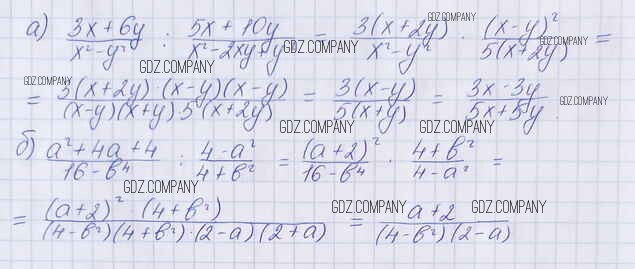 а) (3x + 6y)/(x² - y²) : (5x + 10y)/(x² - 2xy + y²) = 3(x + 2y)/(x² - y²) · (x - y)²/(5(x + 2y)) =
= 3(x + 2y) · (x - y)(x - y)/((x - y)(x + y) 5(x + 2y)) = 3(x - y)/(5(x + y)) = (3x - 3y)/(5x + 5y).
б) (a² + 4a + 4)/(16 - b⁴) : (4 - a²)/(4 + b²) = (a + 2)²/(16 - b⁴) · (4 + b²)/(4 - a²) =
= (a + 2)² · (4 + b²)/((4 - b²)(4 + b²) · (2 - a)(2 + a)) = (a + 2)/((4 - b²)(2 - a))
GDZ.COMPANY
GDZ.COMPANY
GDZ.COMPANY
GDZ.COMPANY
GDZ.COMPANY
GDZ.COMPANY
GDZ.COMPANY
GDZ.COMPANY
GDZ.COMPANY
GDZ.COMPANY
GDZ.COMPANY